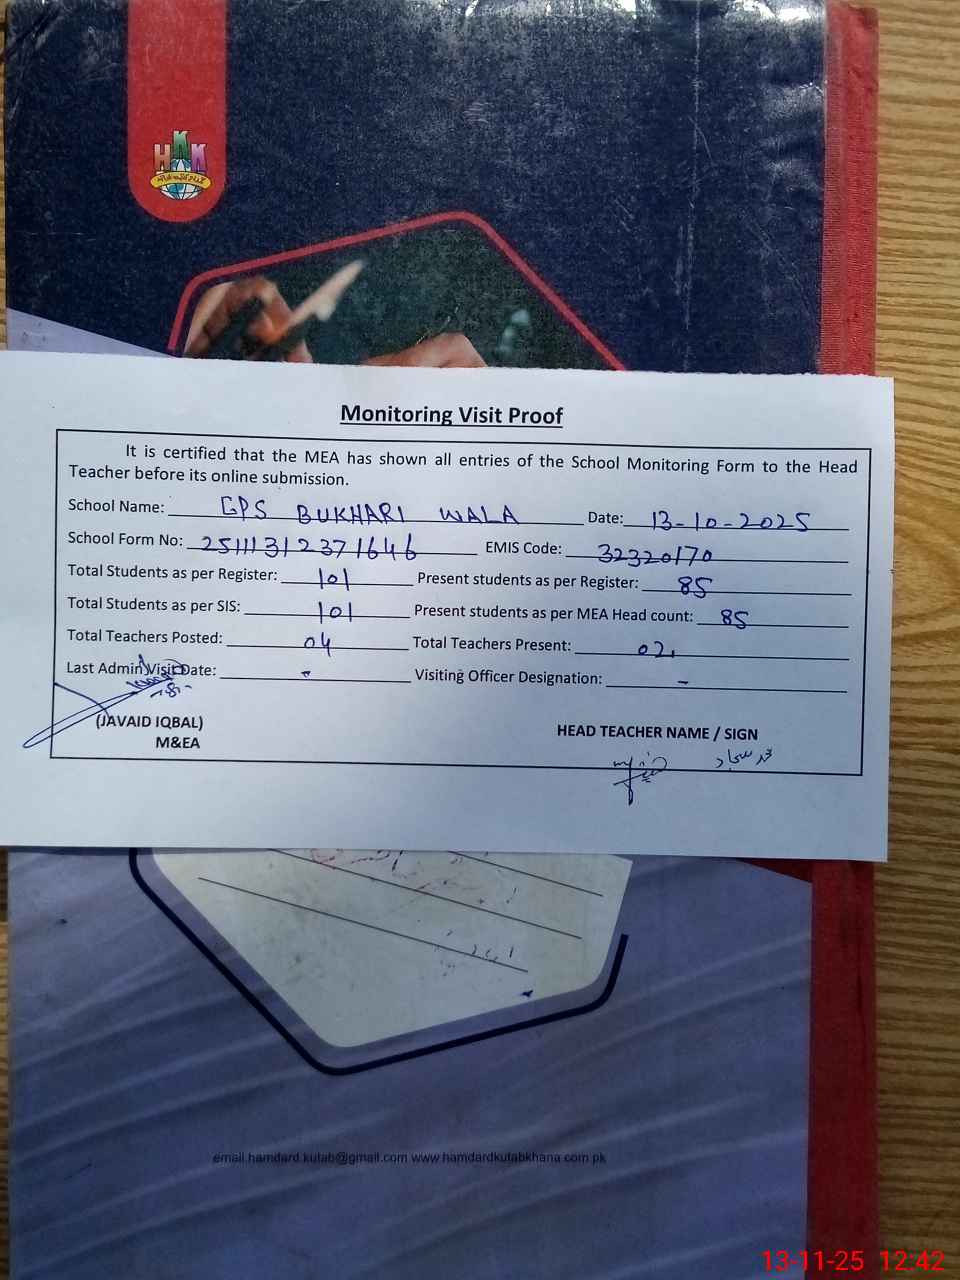 HKK
Monitoring Visit Proof
It is certified that the MEA has shown all entries of the School Monitoring Form to the Head
Teacher before its online submission.
School Name: GPS BUKHARI WALA Date: 13-10-2025
School Form No: 25111312371646 EMIS Code: 32320170
Total Students as per Register: 101 Present students as per Register: 85
Total Students as per SIS: 101 Present students as per MEA Head count: 85
Total Teachers Posted: 04 Total Teachers Present: 02
Last Admin Visit Date: - Visiting Officer Designation: -
(JAVAID IQBAL)
M&EA
HEAD TEACHER NAME / SIGN
email.hamdard.kutab@gmail.com www.hamdardkutabkhana.com.pk
13-11-25 12:42